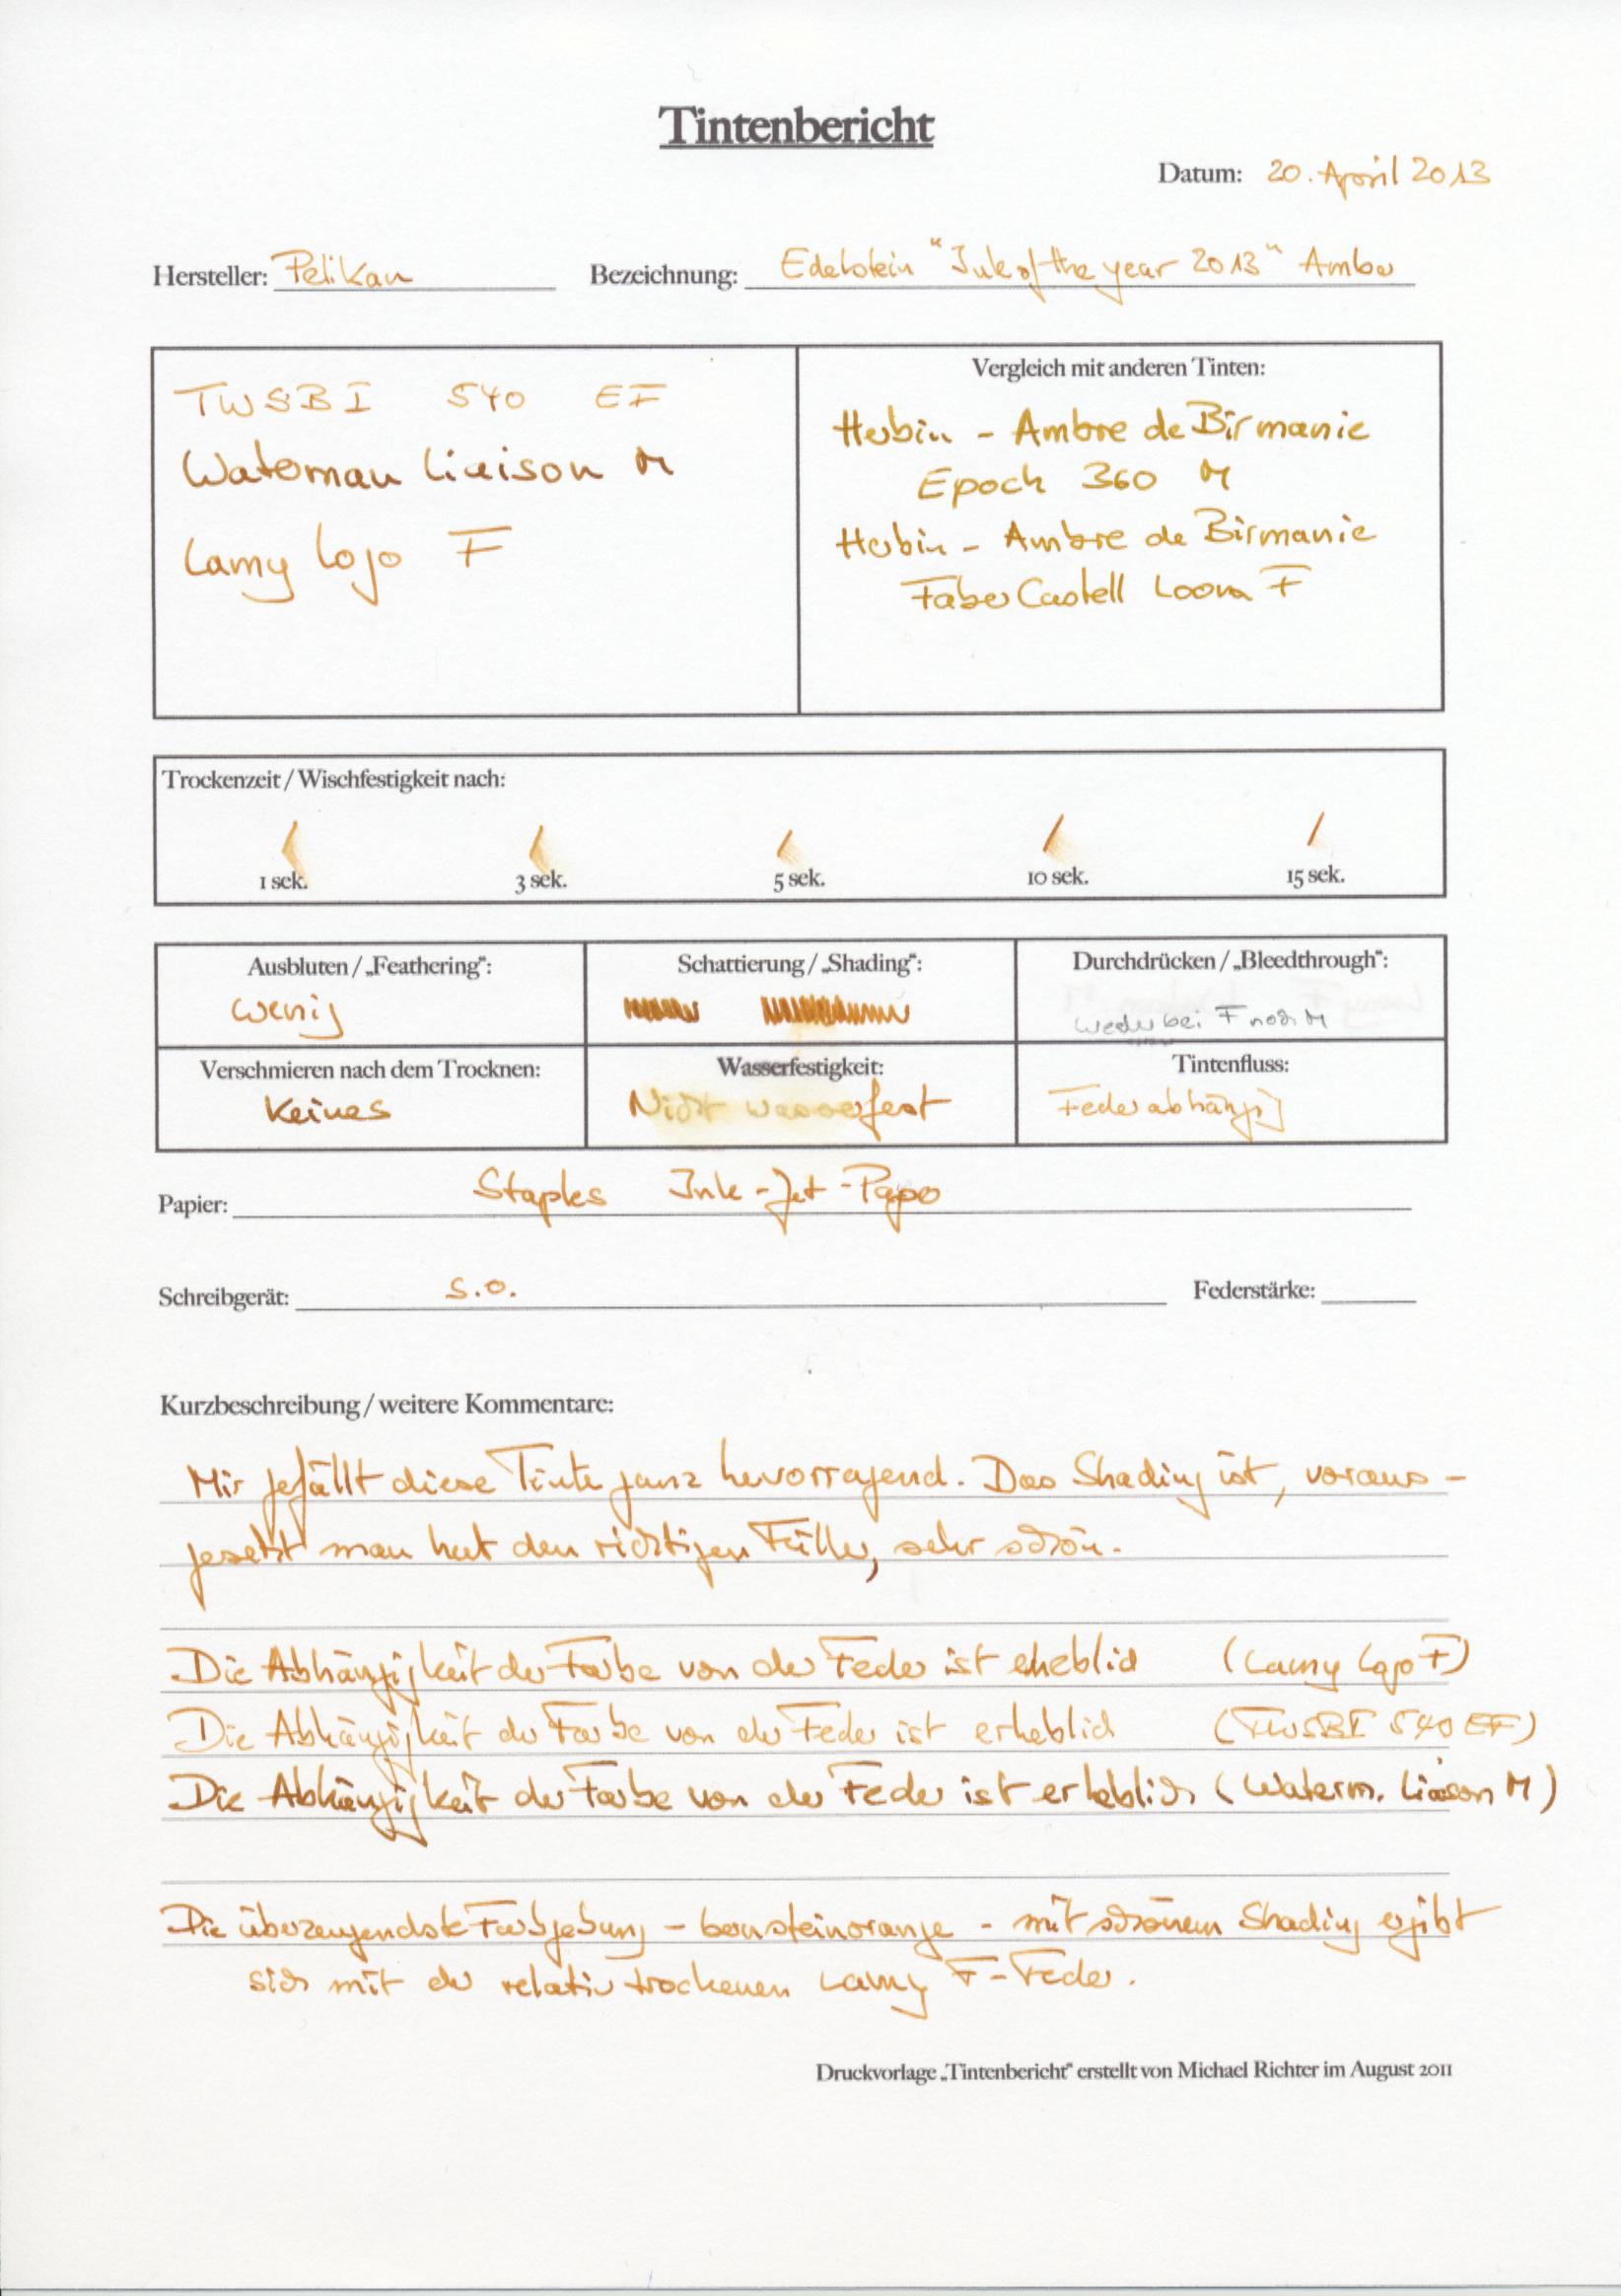 Tintenbericht
Datum: 20. April 2013
Hersteller: Pelikan Bezeichnung: Edelstein "Ink of the year 2013" Amber
TWSBI 540 EF
Waterman Liaison M
Lamy Logo F
Vergleich mit anderen Tinten:
Herbin - Ambre de Birmanie
Epoch 360 M
Herbin - Ambre de Birmanie
Faber Castell Loom F
Trockenzeit / Wischfestigkeit nach:
1 sek. 3 sek. 5 sek. 10 sek. 15 sek.
Ausbluten / „Feathering": Schattierung / „Shading": Durchdrücken / „Bleedthrough":
wenig weder bei F noch M
Verschmieren nach dem Trocknen: Wasserfestigkeit: Tintenfluss:
Keines Nicht wasserfest Federabhängig
Papier: Staples Ink-Jet-Paper
Schreibgerät: s.o. Federstärke:
Kurzbeschreibung / weitere Kommentare:
Mir gefällt diese Tinte ganz hervorragend. Das Shading ist, voraus-
gesetzt man hat den richtigen Füller, sehr schön.
Die Abhängigkeit der Farbe von der Feder ist erheblich (Lamy Logo F)
Die Abhängigkeit der Farbe von der Feder ist erheblich (TWSBI 540 EF)
Die Abhängigkeit der Farbe von der Feder ist erheblich (Waterm. Liaison M)
Die überzeugendste Farbgebung - bernsteinorange - mit schönem Shading ergibt
sich mit der relativ trockenen Lamy F-Feder.
Druckvorlage „Tintenbericht" erstellt von Michael Richter im August 2011